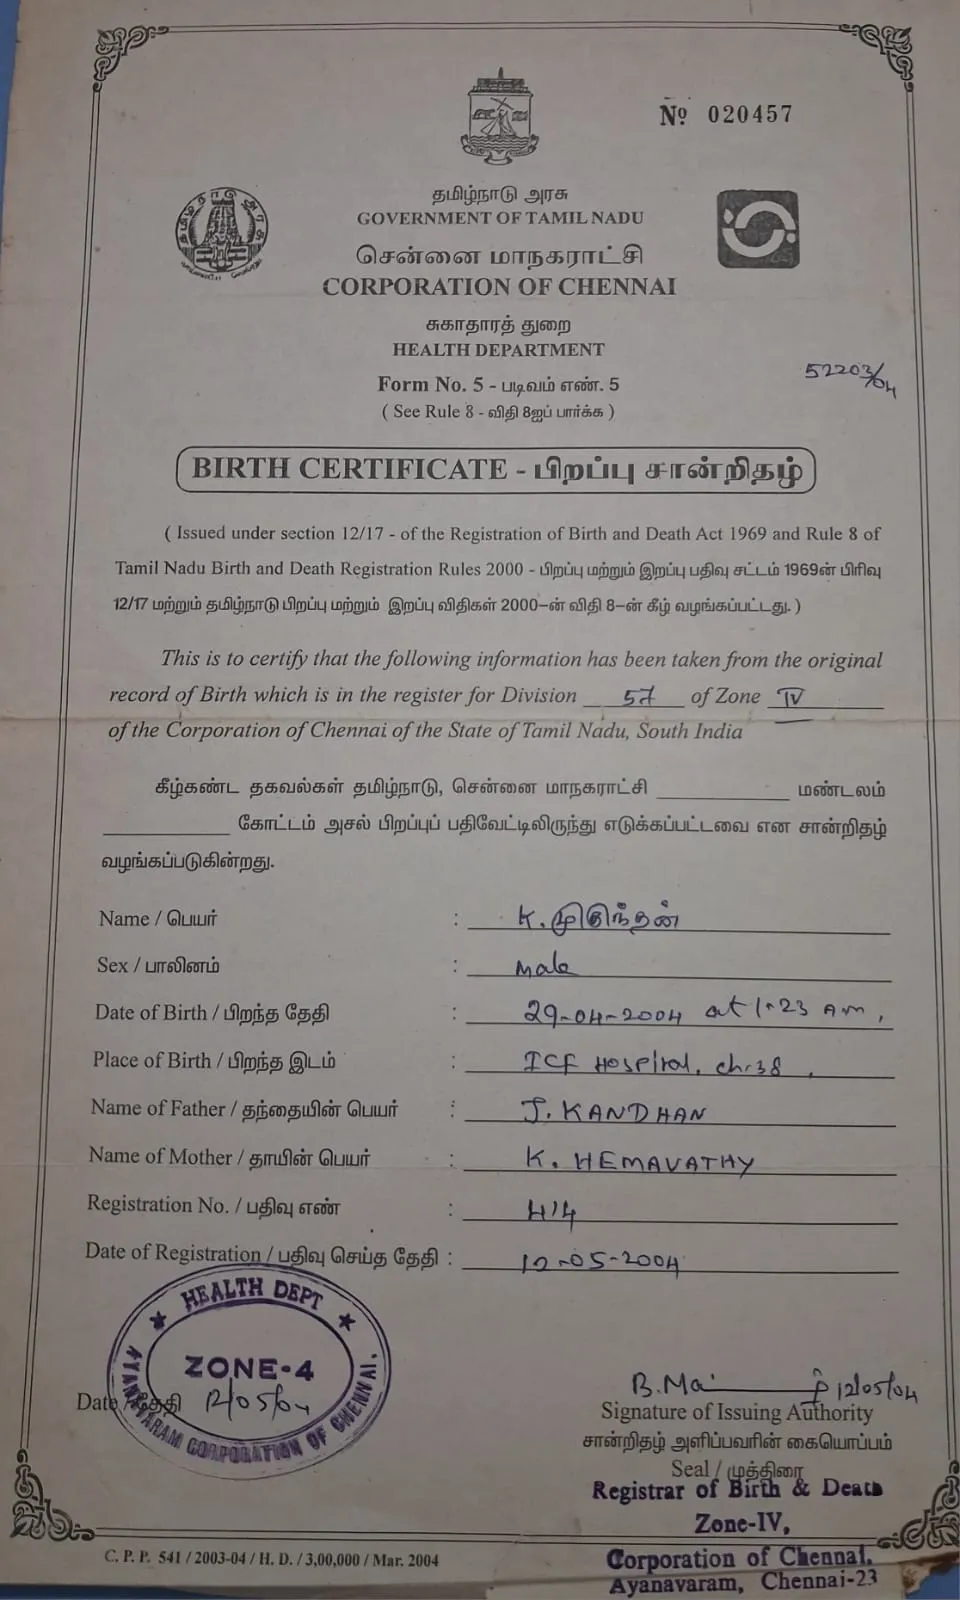 Nº 020457
தமிழ்நாடு அரசு
தமிழ்நாடு அரசு
GOVERNMENT OF TAMIL NADU
சென்னை மாநகராட்சி
CORPORATION OF CHENNAI
சுகாதாரத் துறை
HEALTH DEPARTMENT
Form No. 5 - படிவம் எண். 5
52203/04
( See Rule 8 - விதி 8ஐப் பார்க்க )
BIRTH CERTIFICATE - பிறப்பு சான்றிதழ்
( Issued under section 12/17 - of the Registration of Birth and Death Act 1969 and Rule 8 of
Tamil Nadu Birth and Death Registration Rules 2000 - பிறப்பு மற்றும் இறப்பு பதிவு சட்டம் 1969ன் பிரிவு
12/17 மற்றும் தமிழ்நாடு பிறப்பு மற்றும் இறப்பு விதிகள் 2000-ன் விதி 8-ன் கீழ் வழங்கப்பட்டது. )
This is to certify that the following information has been taken from the original
record of Birth which is in the register for Division 57 of Zone IV
of the Corporation of Chennai of the State of Tamil Nadu, South India
கீழ்கண்ட தகவல்கள் தமிழ்நாடு, சென்னை மாநகராட்சி மண்டலம்
கோட்டம் அசல் பிறப்புப் பதிவேட்டிலிருந்து எடுக்கப்பட்டவை என சான்றிதழ்
வழங்கப்படுகின்றது.
Name / பெயர் : K.
Sex / பாலினம் : Male
Date of Birth / பிறந்த தேதி : 29-04-2004 at 1.23 AM,
Place of Birth / பிறந்த இடம் : ICF Hospital, ch.38,
Name of Father / தந்தையின் பெயர் : J. KANDHAN
Name of Mother / தாயின் பெயர் : K. HEMAVATHY
Registration No. / பதிவு எண் : 414
Date of Registration / பதிவு செய்த தேதி : 12-05-2004
HEALTH DEPT
ZONE-4
AYANAVARAM CORPORATION OF CHENNAI.
Date / தேதி 12/05/04
B.Ma 12/05/04
Signature of Issuing Authority
சான்றிதழ் அளிப்பவரின் கையொப்பம்
Seal / முத்திரை
Registrar of Birth & Death
Zone-IV,
Corporation of Chennai,
Ayanavaram, Chennai-23
C. P. P. 541 / 2003-04 / H. D. / 3,00,000 / Mar. 2004